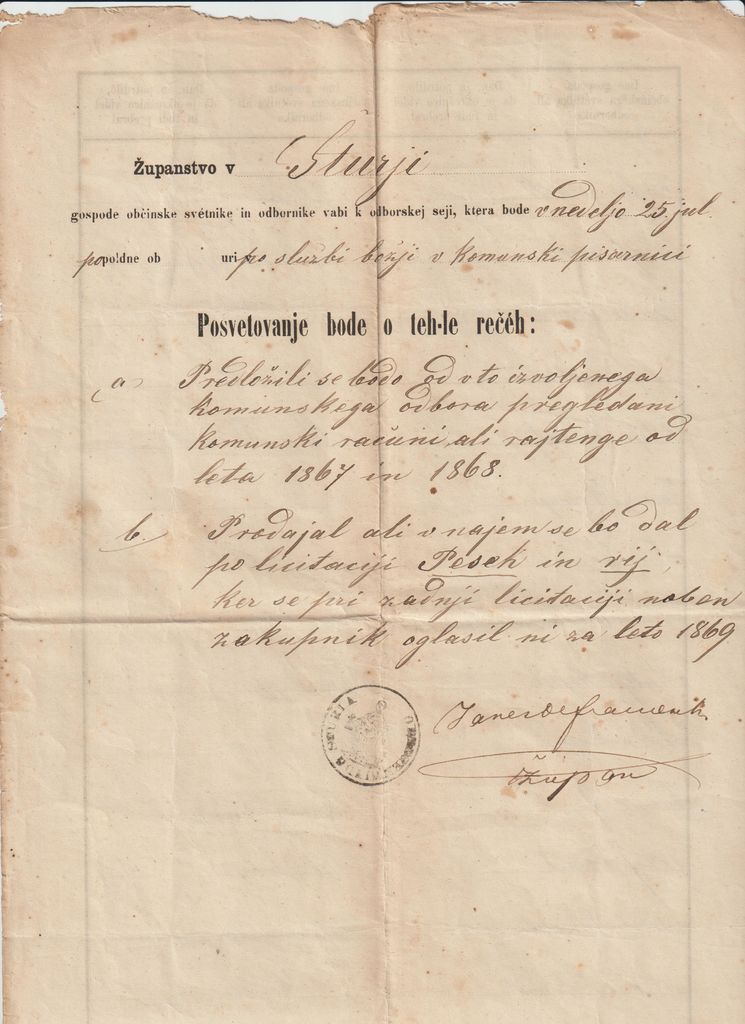 Županstvo v Sturji
gospode občinske svétnike in odbornike vabi k odborskej seji, ktera bode v nedeljo 25. jul.
popoldne ob uri po službi božji v komunski pisarnici
Posvetovanje bode o teh-le rečéh:
a) Predložili se bodo od v to izvoljenega
komunskega odbora pregledani
komunski računi ali rajtenge od
leta 1867 in 1868.
b. Prodajal ali v najem se bo dal
po licitaciji Pesek in rij,
ker se pri zadnji licitaciji noben
zakupnik oglasil ni za leto 1869
STURIA
Župan